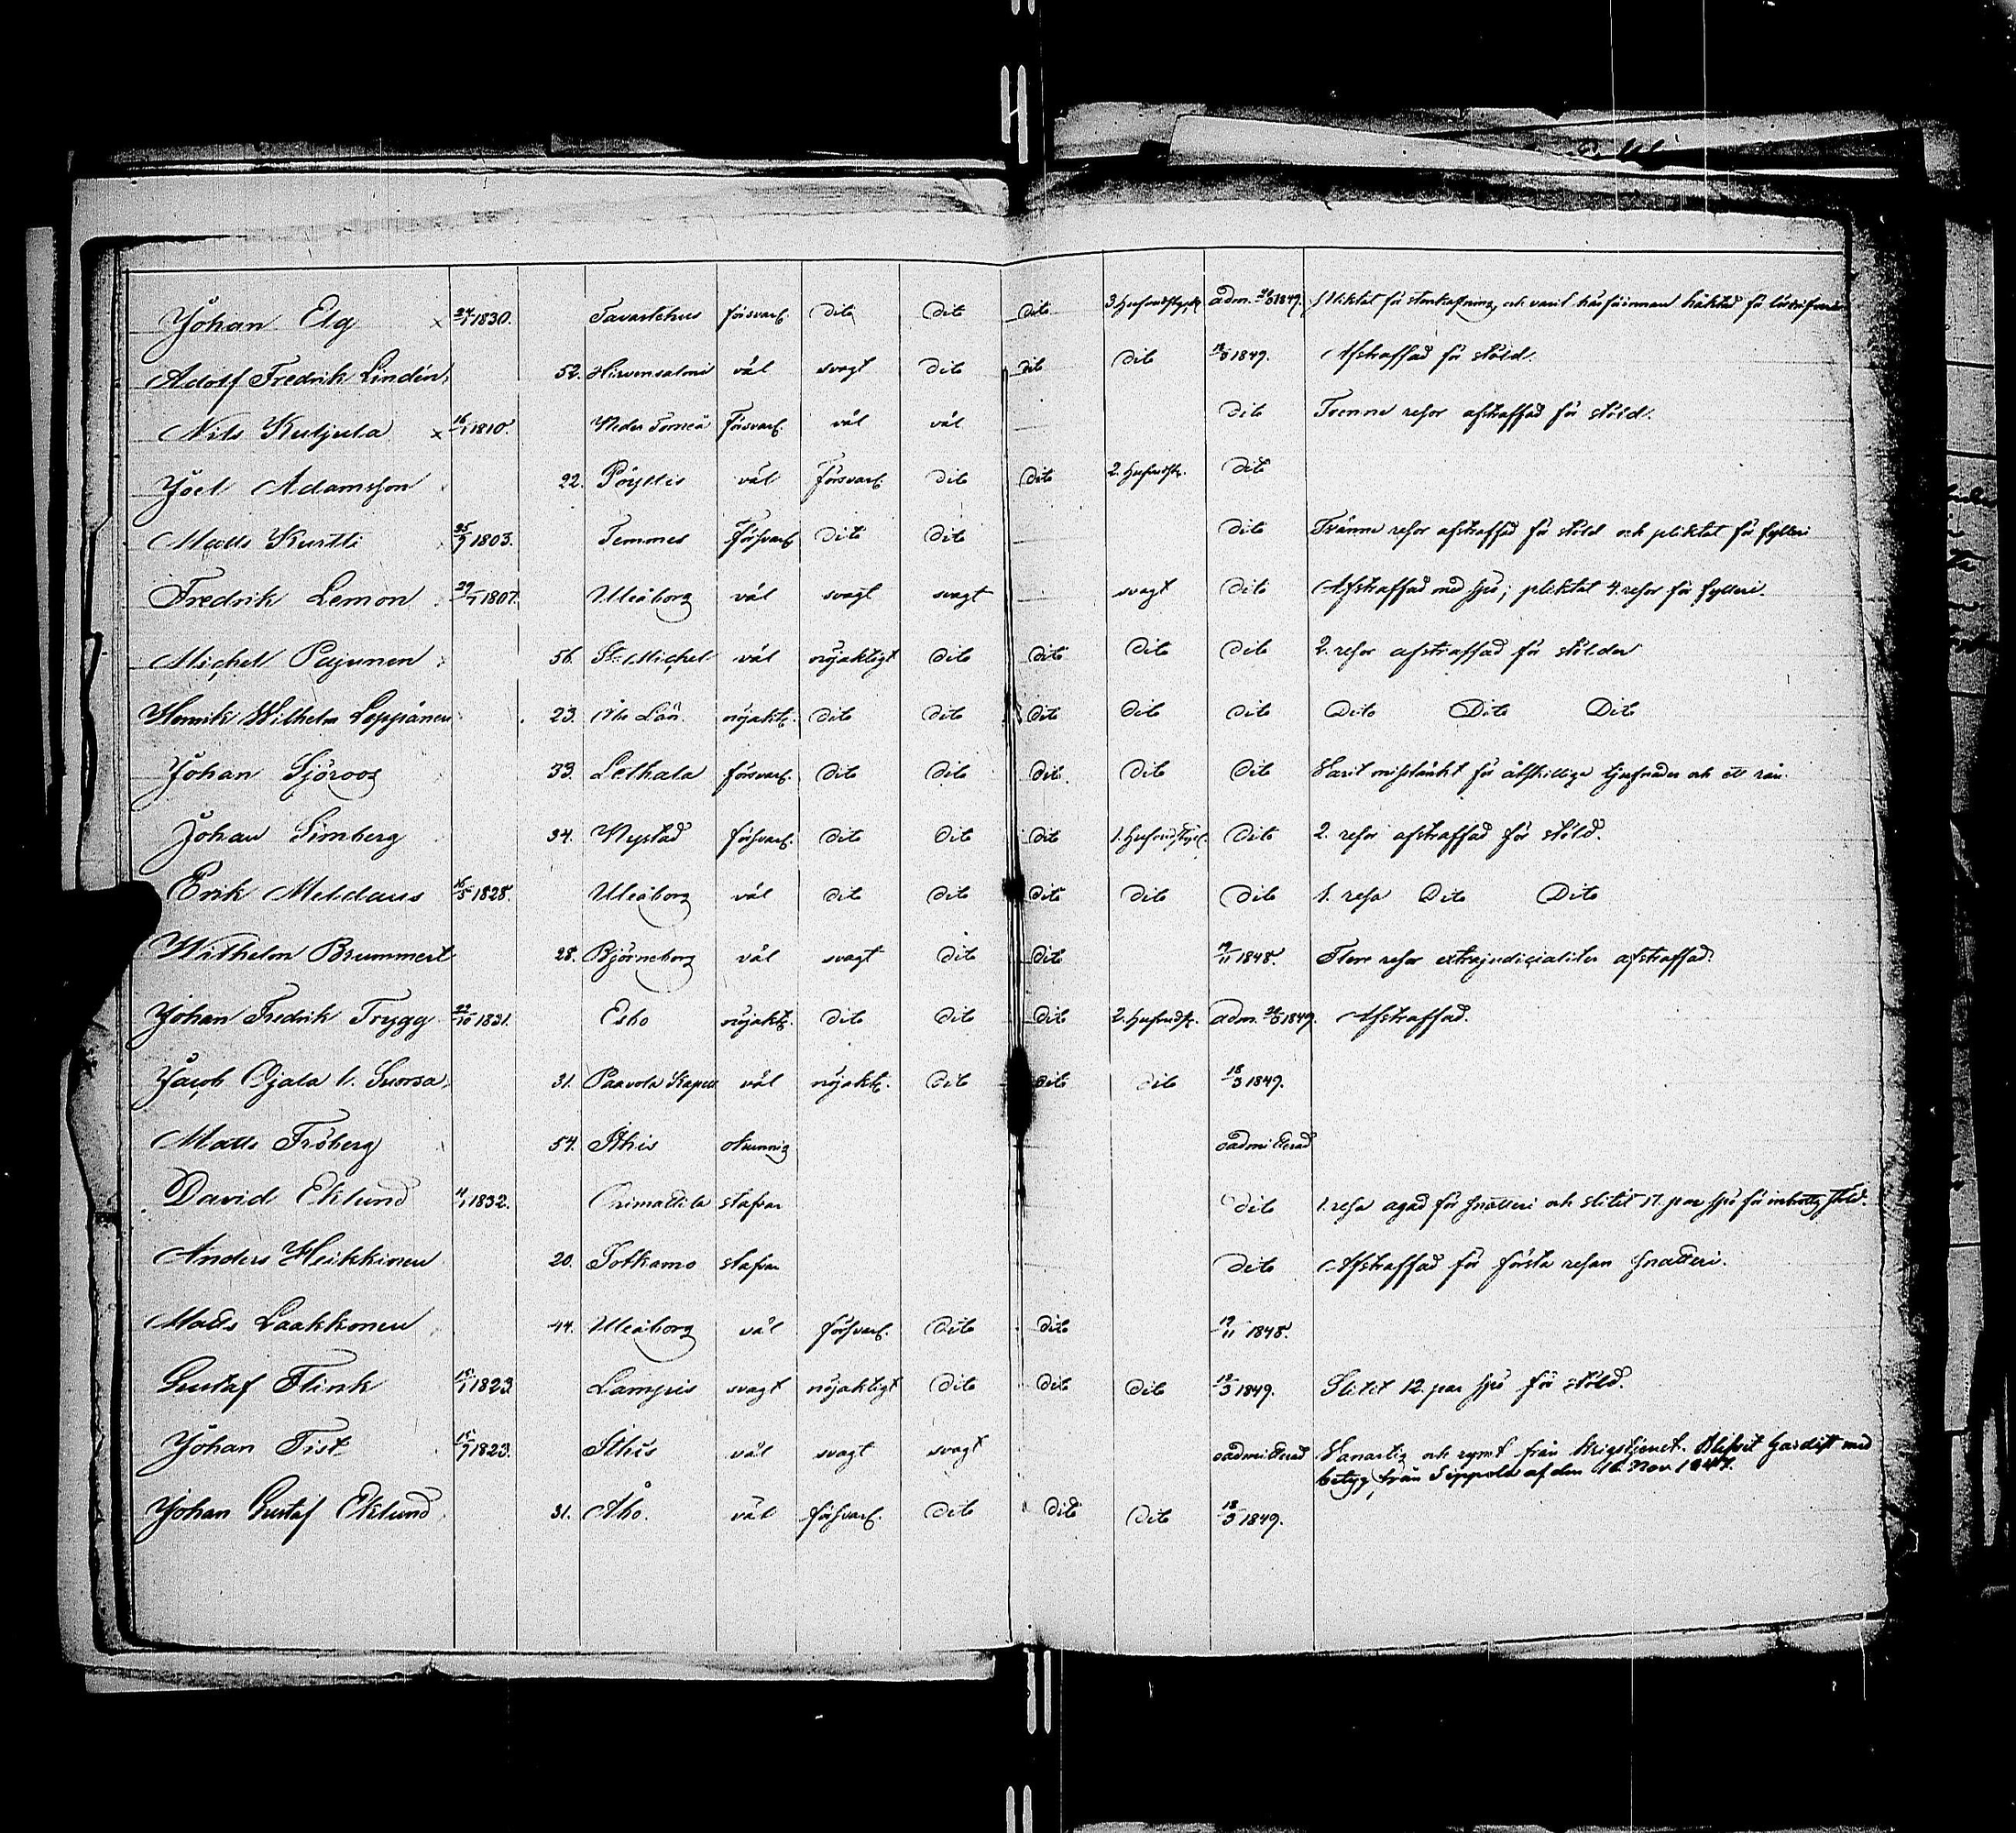 Johan Elg × 24/1 1830. Tavastehus försvarl. dito dito dito 3. hufvudstyck adm. 1849. Pliktat för och varit härförinnan häktad för
Adolf Fredrik Lindén 52. Hirvensalmi väl svagt dito dito dito 18/3 1849. Afstraffad för stöld.
Nils Kuljula × 16/1 1810. Neder Torneå Försvarl. väl väl dito Trenne resor afstraffad för stöld.
Joel Adamsson 22. Pöyttis väl Försvarl. dito dito 2. hufvudst. dito
Matts Kurtti 25/9 1803. Temmes Försvarl. dito dito dito Tvänne resor afstraffad för stöld och pliktat för fylleri
Fredrik Lemon 29/7 1807. Uleåborg väl svagt svagt svagt dito Afstraffad med spö; pliktat 4. resor för fylleri.
Michel Pajunen 56. St. Michel väl nöjaktigt dito dito dito dito 2. resor afstraffad för stölder
Henrik Wilhelm Leppänen 23. Åbo Län. nöjakt. dito dito dito dito dito Dito Dito Dito
Johan Sjöroos 33. Lethala försvarl. dito dito dito dito dito Varit misstänkt för åtskillige tjufnader och ett rån.
Johan Simberg 34. Nystad försvarl. dito dito dito 1. hufvudstyck. dito 2. resor afstraffad för stöld.
Erik Meldaus 16/5 1828. Uleåborg väl dito dito dito dito dito 1. resa Dito Dito
Wilhelm Brummert 28. Björneborg väl svagt dito dito 19/11 1848. Flere resor extrajudicialiter afstraffad.
Johan Fredrik Trygg 22/10 1831. Esbo nöjakt. dito dito dito 2. hufvudst. adm. 1849. Afstraffad.
Jacob Ojala l. Suorsa 31. Paavola Kapell väl nöjakt. dito dito dito 18/3 1849.
Matts Fröberg 54. Sthis okunnig oadmitterad
David Eklund 4/1 1832. Orimattila stafvar dito 1. resa agad för snatteri och slitit 17. par spö för stöld.
Anders Heikkinen 20. Sotkamo stafvar dito Afstraffad för första resan snatteri.
Matts Laakkonen 44. Uleåborg väl försvarl. dito dito 19/11 1848.
Gustaf Flink 15/1 1823. Lampis svagt nöjaktigt dito dito dito 18/3 1849. Slitit 12. par spö för stöld.
Johan Tist 15/7 1823. Sthis väl svagt svagt oadmitterad Vanartig och rymt från krigstjenst. Blifvit med
betyg från Sippola af den 16. Nov 1847.
Johan Gustaf Eklund 31. Åbo. väl försvarl. dito dito dito 18/3 1849.